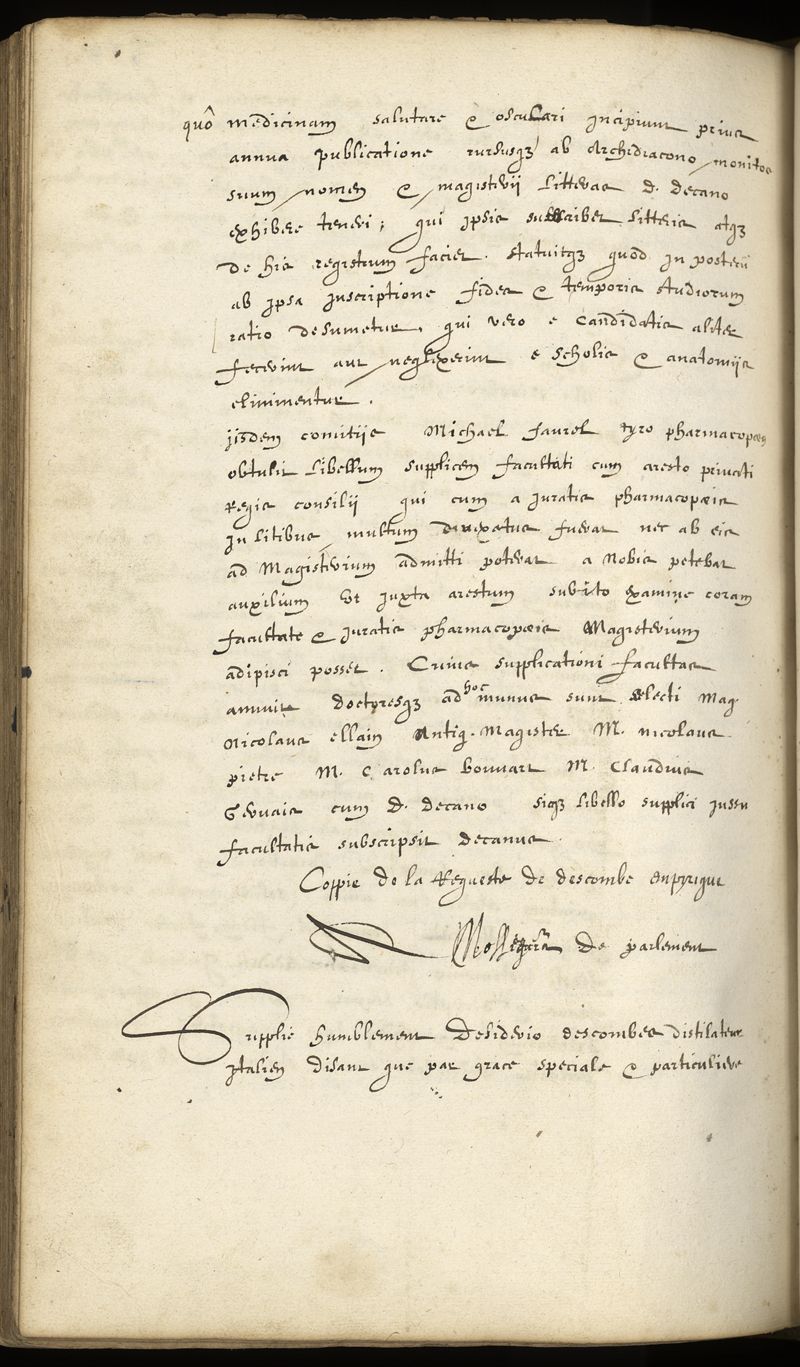 quô medicinam salutare & osculari incipiunt prima
annua publicatione rursusqz ab Archidiacono monitos
suum nomen & magisterii litteras d. decano
exhibere teneri; qui ipsis subscribet litteris atqz
de his registrum faciet. statuitqz quod in posterū
ab ipsa inscriptione fides & temporis studiorum
ratio desumetur, qui vero e candidatis aliter
fecerint aut neglexerint e scholis & anatomijs
eliminentur.
ijsdem comitijs Michael faurel tyro pharmacopœus
obtulit libellum supplicem facultati cum aresto privati
Regis consilii qui cum a juratis pharmacopœis
in litibus multum divexatus fuerat nec ab eis
ad Magisterium admitti poterat a Nobis petebat
auxilium Vt juxta arestum subito examine coram
facultate & juratis pharmacopœis Magisterium
adipisci posset. Cuius supplicationi facultas
annuit doctoresqz ad hoc munus sunt electi Mag.
Nicolaus ellain Antiq. Magister M. nicolaus
pietre M. Carolus bouuart M. Claudius
Geruais cum d. decano siqz libello supplici jussu
facultatis subscripsit decanus.
Coppie de la Requeste de descombe enpyrique
A Nosseigrs de parlement
Supplie humblement Desiderio descombes distilateur
italien disant que par grace speciale & particuliere